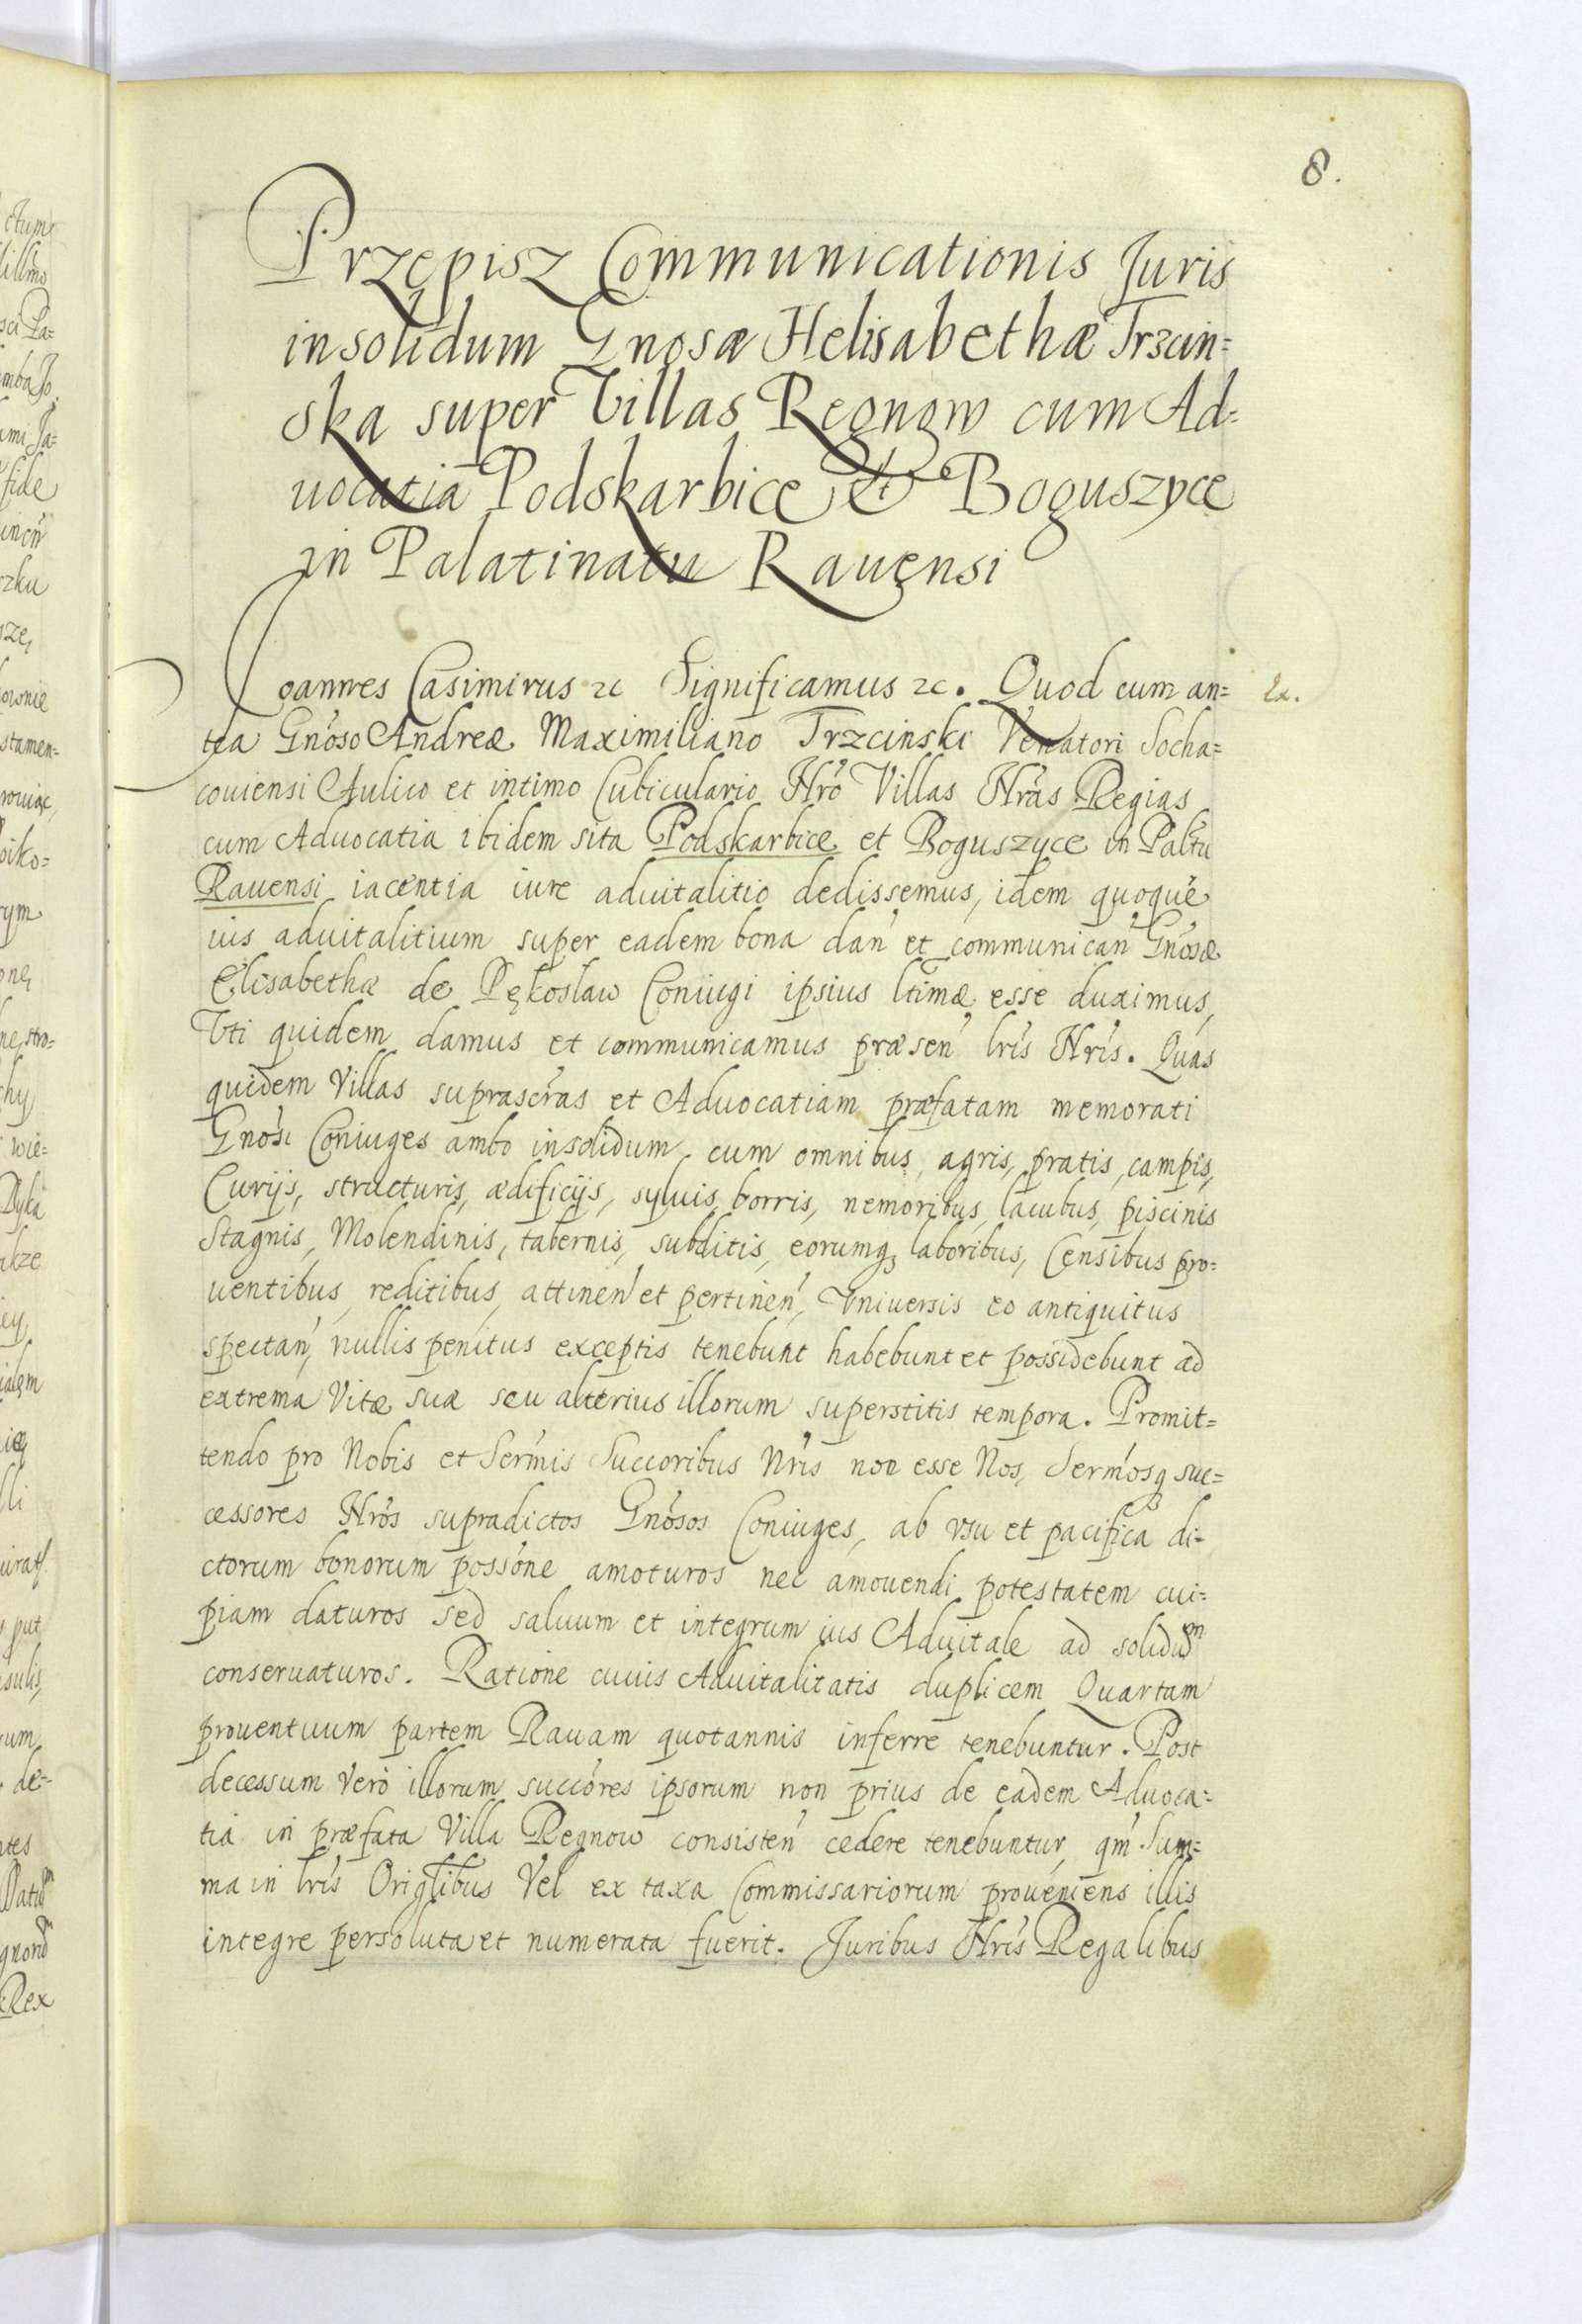 8.
Przepisz Communicationis Juris
insolidum Gnosæ Helisabethæ Trzcin=
ska super Villas Regnow cum Ad=
uocatia Podskarbice et Boguszyce
in Palatinatu Rauensi
Joannes Casimirus &c Significamus &c. Quod cum an=
tea Gnoso Andreæ Maximiliano Trzcinski Venatori Socha=
couiensi Aulico et intimo Cubiculario Nro Villas Nras Regias
cum Aduocatia ibidem sita Podskarbice et Boguszyce in Paltu
Rauensi iacentia iure aduitalitio dedissemus, idem quoque
ius aduitalitium super eadem bona dan et communican Gnosæ
Elisabethæ de Pękoslaw Coniugi ipsius ltimæ esse duximus,
Vti quidem damus et communicamus præsen lris Nris. Quas
quidem Villas suprascras et Aduocatiam præfatam memorati
Gnosi Coniuges ambo insolidum cum omnibus, agris, pratis, campis,
Curijs, structuris, ædificijs, syluis, borris, nemoribus, lacubus, piscinis
Stagnis, Molendinis, tabernis, subditis, eorumq3 laboribus, Censibus pro=
uentibus, reditibus, attinen et pertinen, Vniuersis eo antiquitus
spectan, nullis penitus exceptis tenebunt habebunt et possidebunt ad
extrema Vitæ suæ seu alterius illorum superstitis tempora. Promit=
tendo pro Nobis et Sermis Succoribus Nris non esse Nos, Sermosq suc=
cessores Nros supradictos Gnosos Coniuges, ab vsu et pacifica di=
ctorum bonorum possone amoturos nec amouendi potestatem cui=
piam daturos sed saluum et integrum ius Aduitale ad solidum
conseruaturos. Ratione cuius Aduitalitatis duplicem Quartam
prouentuum partem Rauam quotannis inferre tenebuntur. Post
decessum Vero illorum succores ipsorum non prius de eadem Aduoca=
tia in præfata Villa Regnow consisten cedere tenebuntur, qm Sum=
ma in lris Origlibus Vel ex taxa Commissariorum proueniens illis
integre persoluta et numerata fuerit. Juribus Nris Regalibus